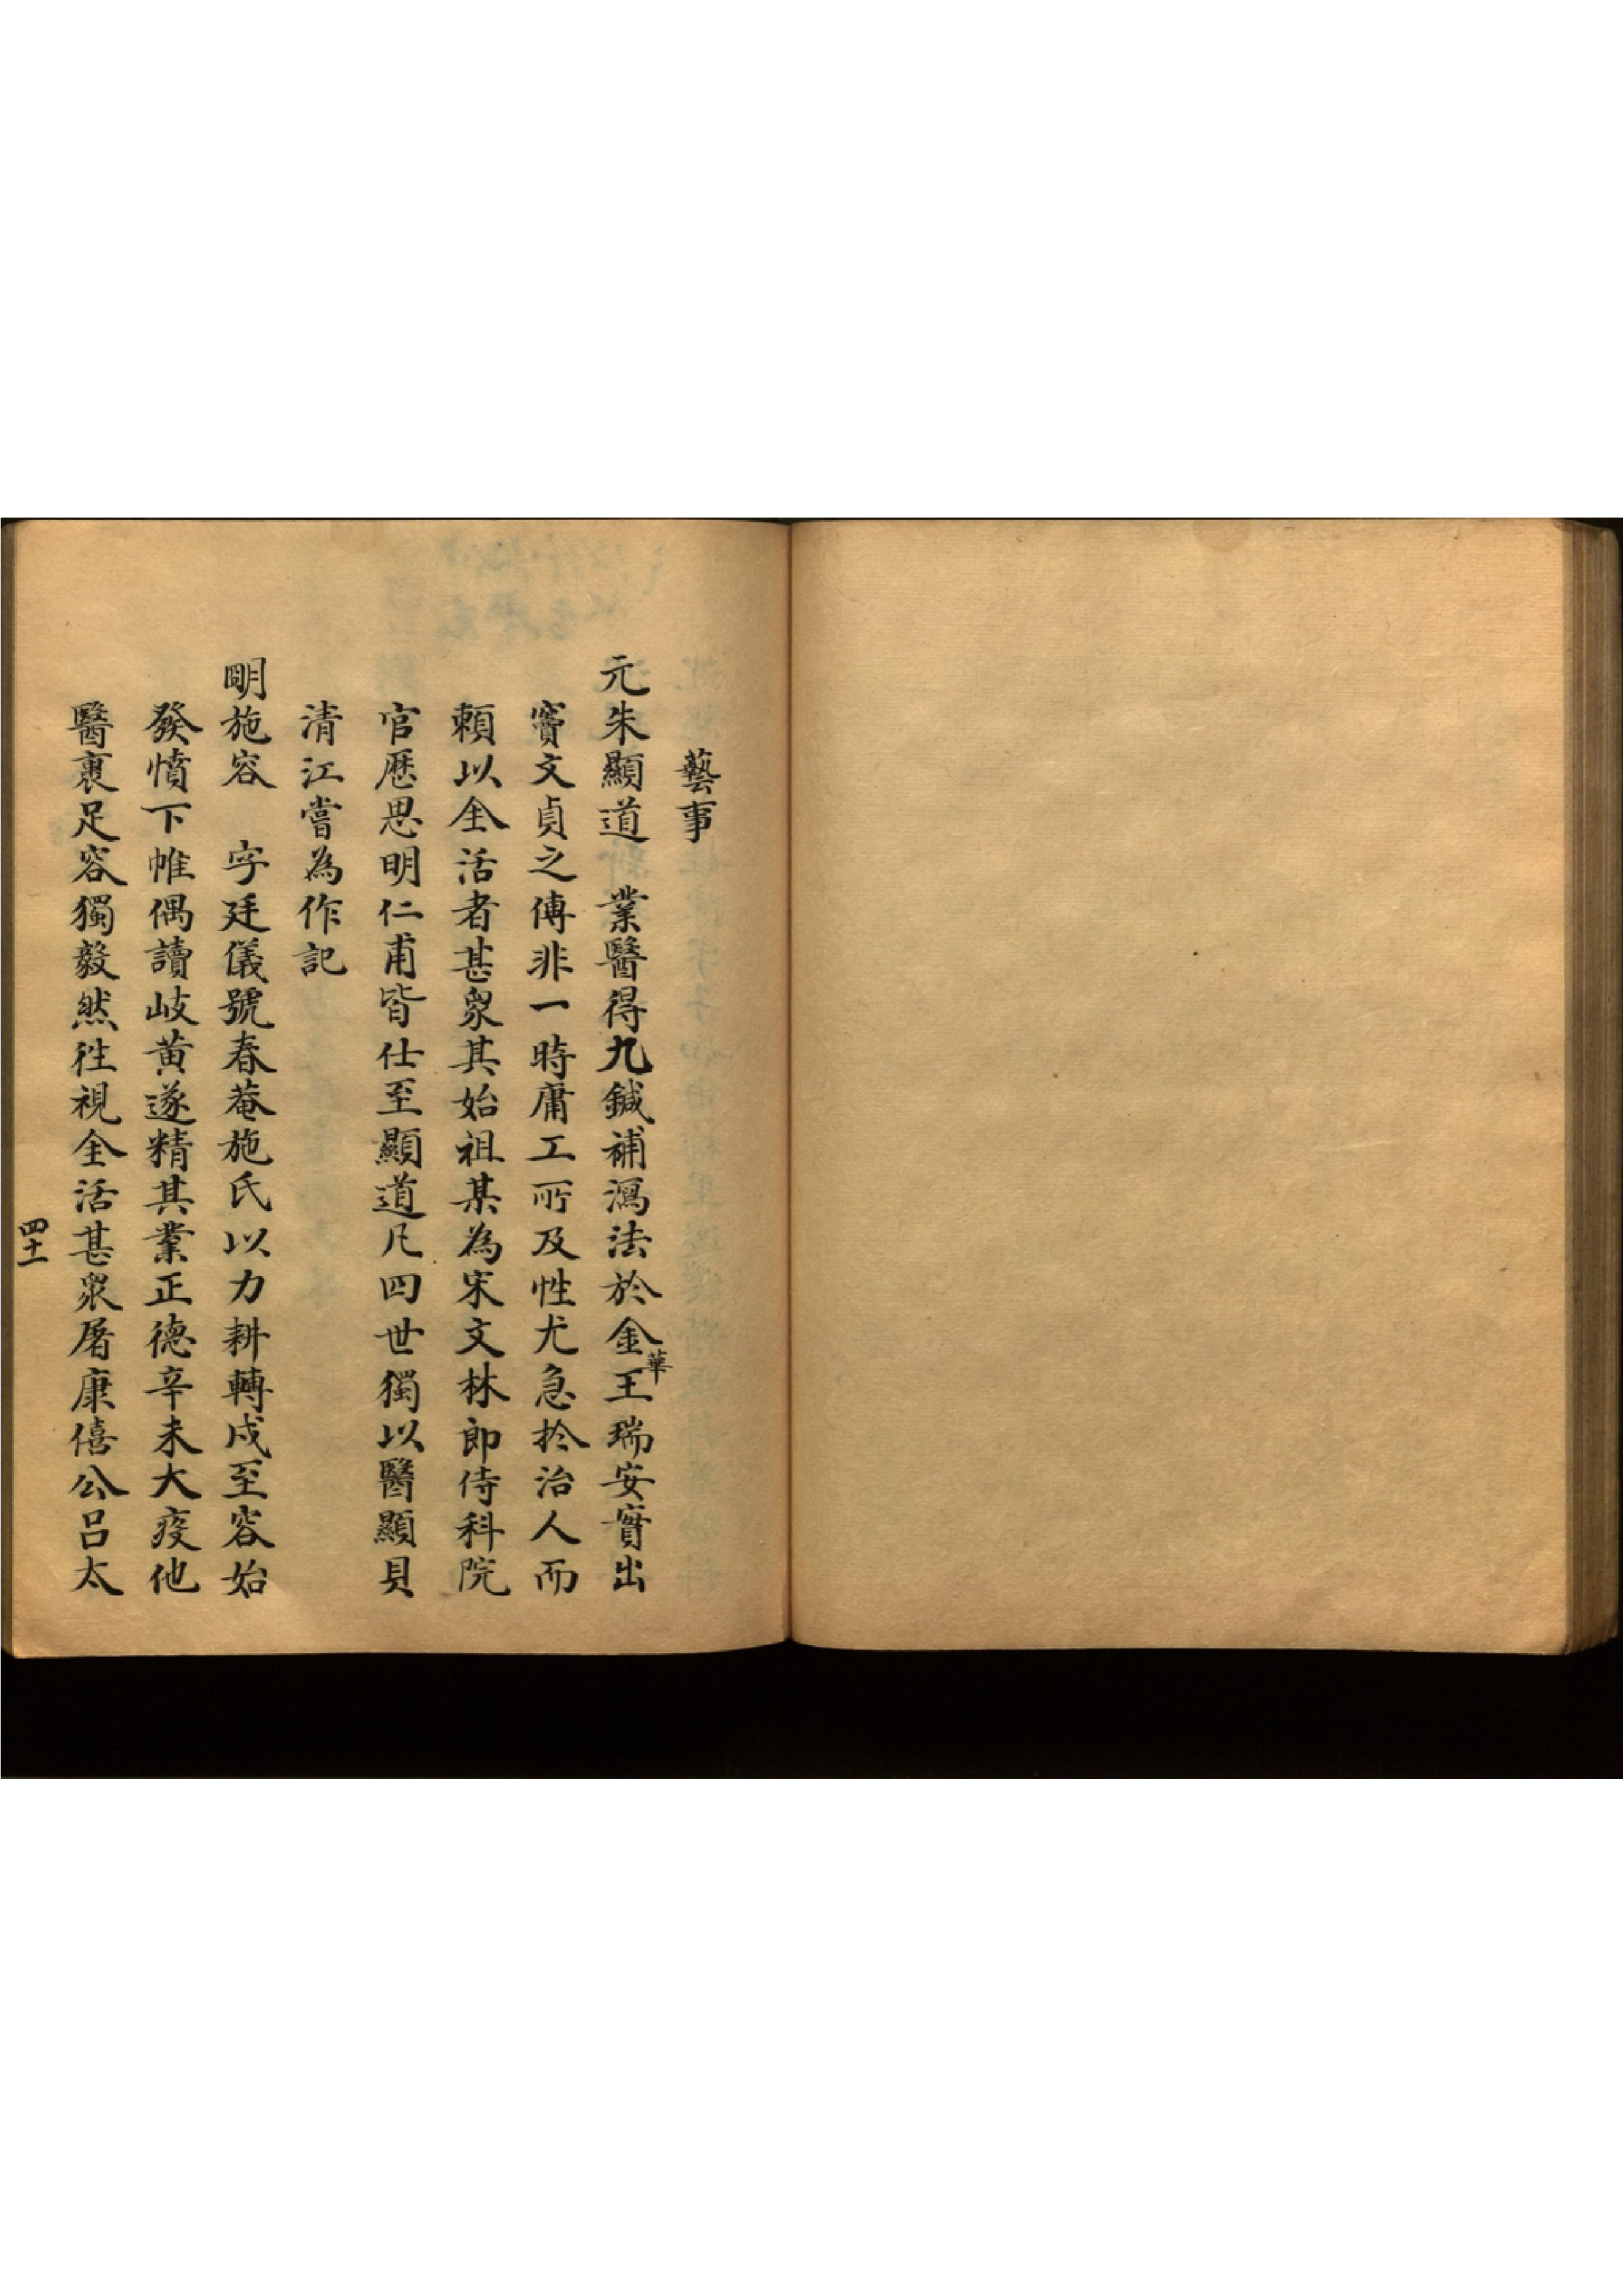 藝事
元朱顯道　業醫得九鍼補瀉法於金華王瑞安實出
竇文貞之傳非一時庸工所及性尤急於治人而
賴以全活者甚眾其始祖某為宋文林郎侍科院
官歷思明仁甫皆仕至顯道凡四世獨以醫顯貝
清江嘗為作記
明施容　字廷儀號春菴施氏以力耕轉戍至容始
發憤下帷偶讀岐黃遂精其業正德辛未大疫他
醫裹足容獨毅然往視全活甚眾屠康僖公呂太
四十一